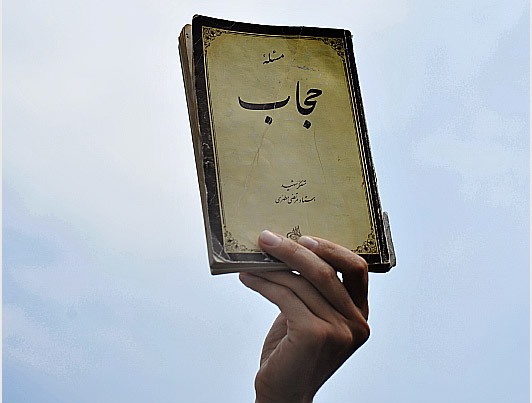 مسئلهٔ
حجاب
متفکر شهید
استاد مرتضی مطهری